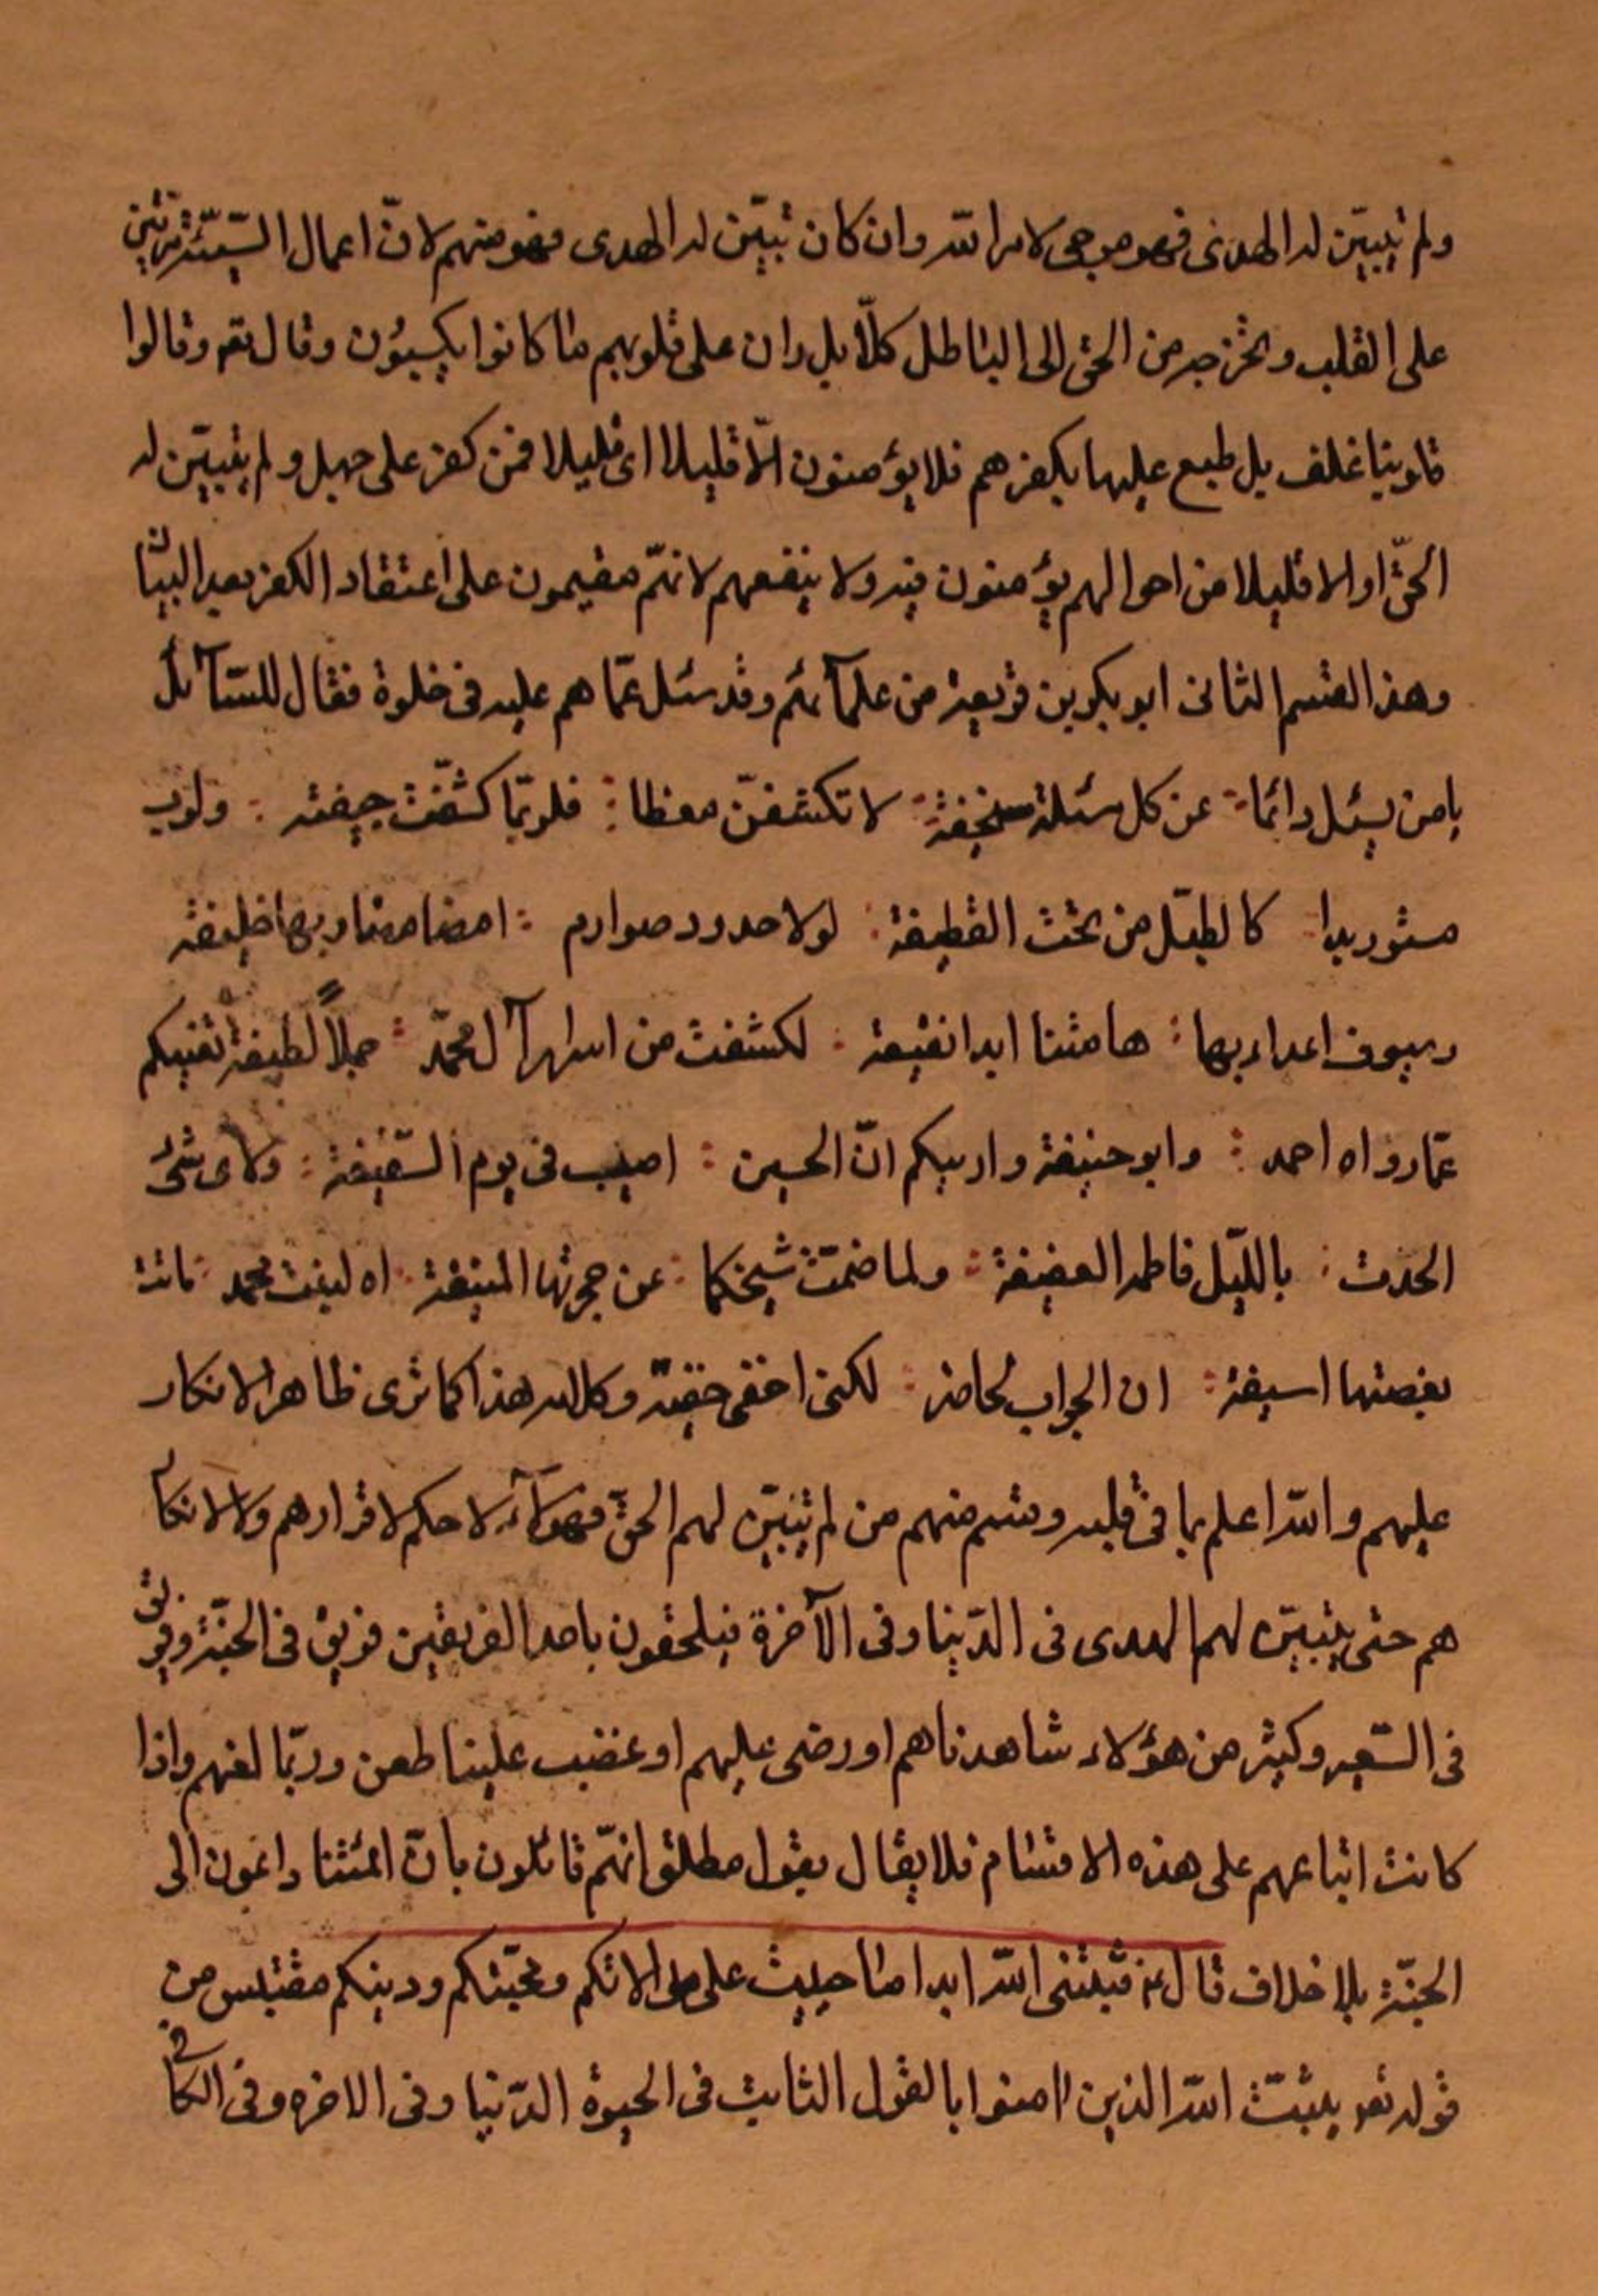 ولم يتبيّن له الهدى فهو مرجى لامر الله وان كان تبيّن له الهدى فهو منهم لانّ اعمال السّيّئة ترين
على القلب وتخرجه من الحق الى الباطل كلّا بل ران على قلوبهم ما كانوا يكسبون وقال تع وقالوا
قلوبنا غلف بل طبع عليها بكفرهم فلا يؤمنون الّا قليلا اى قليلا فمن كفر على جهل ولم يتبيّن له
الحقّ او الا قليلا من احوالهم يؤمنون فيه ولا ينفعهم لانهّم مقيمون على اعتقاد الكفر بعد البيان
وهذا القسم الثانى ابو بكر بن قريعة من علمآئهم وقد سئل عمّا هم عليه فى خلوة فقال للسّآئل
يا من يسئل دائما : عن كل مسئلة سخيفة : لا تكشفنّ مغطا : فلربّما كشّفت جيفته : ولرب
مستور بدا : كالطبّل من تحت القطيفة : لولا حدود صوارم : امضا مضاربها خليفة
وسيوف اعداء بها : هامتنا ابدا نقيعة : لكشفت من اسرار آل محمّد : جملاً لطيفة تغنيكم
عمّا رواه احمد : وابو حنيفة واريكم انّ الحسين : اصيب فى يوم السّقيفة : ولاى شئ
الحدت : بالليّل فاطمه العفيفة : ولما ضمّت شيخكما : عن حجرتها المنيفة : اه لبنت محمد : ماتت
بغصتها اسيفة : ان الجواب لحاضر : لكنى اخفى خفيّه وكلامه هذا كما ترى ظاهر الانكار
عليهم والله اعلم بما فى قلبه وقسم منهم من لم يتبيّن لهم الحقّ فهؤلآء لا حكم لاقرارهم ولا لانكار
هم حتى يتبيّن لهم الهدى فى الدّنيا وفى الآخرة فيلحقون باحد الفريقين فريق فى الجنّة وفريق
فى السّعير وكثير من هؤلاء شاهدناهم اورضى عليهم او غضب علينا طعن وربّما لغنهم واذا
كانت اتباعهم على هذه الاقسام فلا يقال بقول مطلق انهّم قائلون بانّ ائمتنا داعون الى
الجنّة بلا خلاف قال ع فثبّتنى الله ابدا ما حييت على موالاتكم ومحبّتكم ودينكم مقتبس من
قوله تعو يثبّت الله الذين اامنوا بالقول الثابت فى الحيوة الدّنيا وفى الاخره وفى الكافى